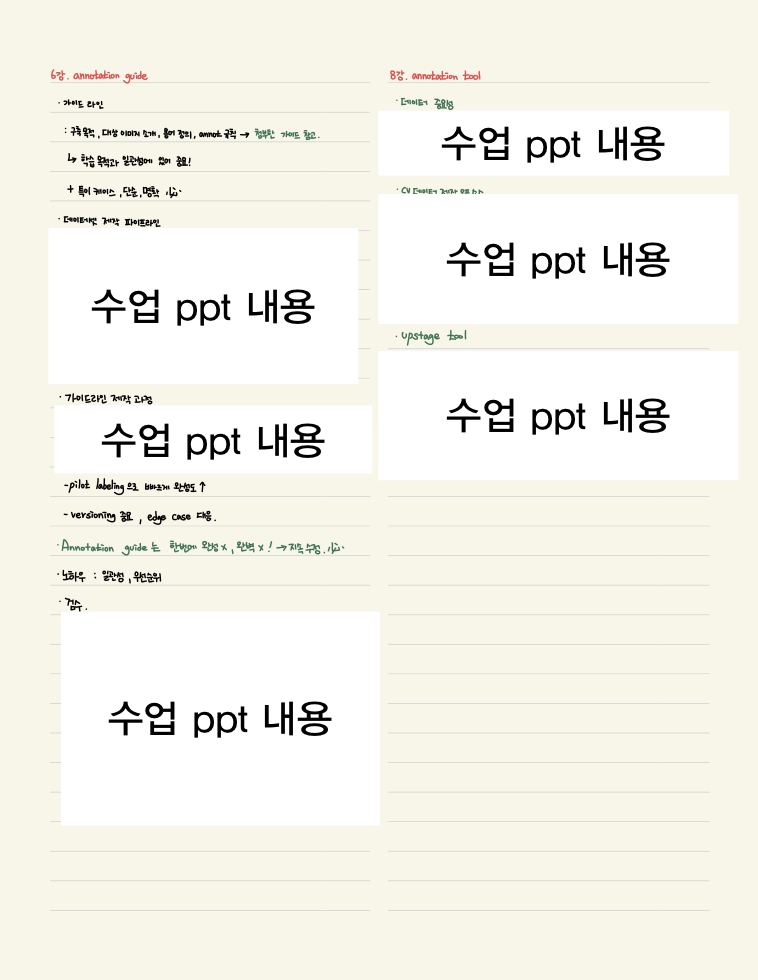 6강. annotation guide
· 가이드 라인
: 구축 목적, 대상 이미지 소개, 용어 정의, annot 규칙 → 첨부한 가이드 참고.
↳ 학습 목적과 일관성에 있어 중요!
+ 특이 케이스, 단순, 명확
· 데이터셋 제작 파이프라인
수업 ppt 내용
· 가이드라인 제작 과정
수업 ppt 내용
- pilot labeling으로 빠르게 완성도 ↑
- versioning 중요, edge case 대응.
· Annotation guide 는 한번에 완성 x, 완벽 x! → 지속 수정.
· 노하우 : 일관성, 우선순위
· 검수.
수업 ppt 내용
8강. annotation tool
· 데이터 중요성
수업 ppt 내용
· CV 데이터 제작
수업 ppt 내용
· upstage tool
수업 ppt 내용